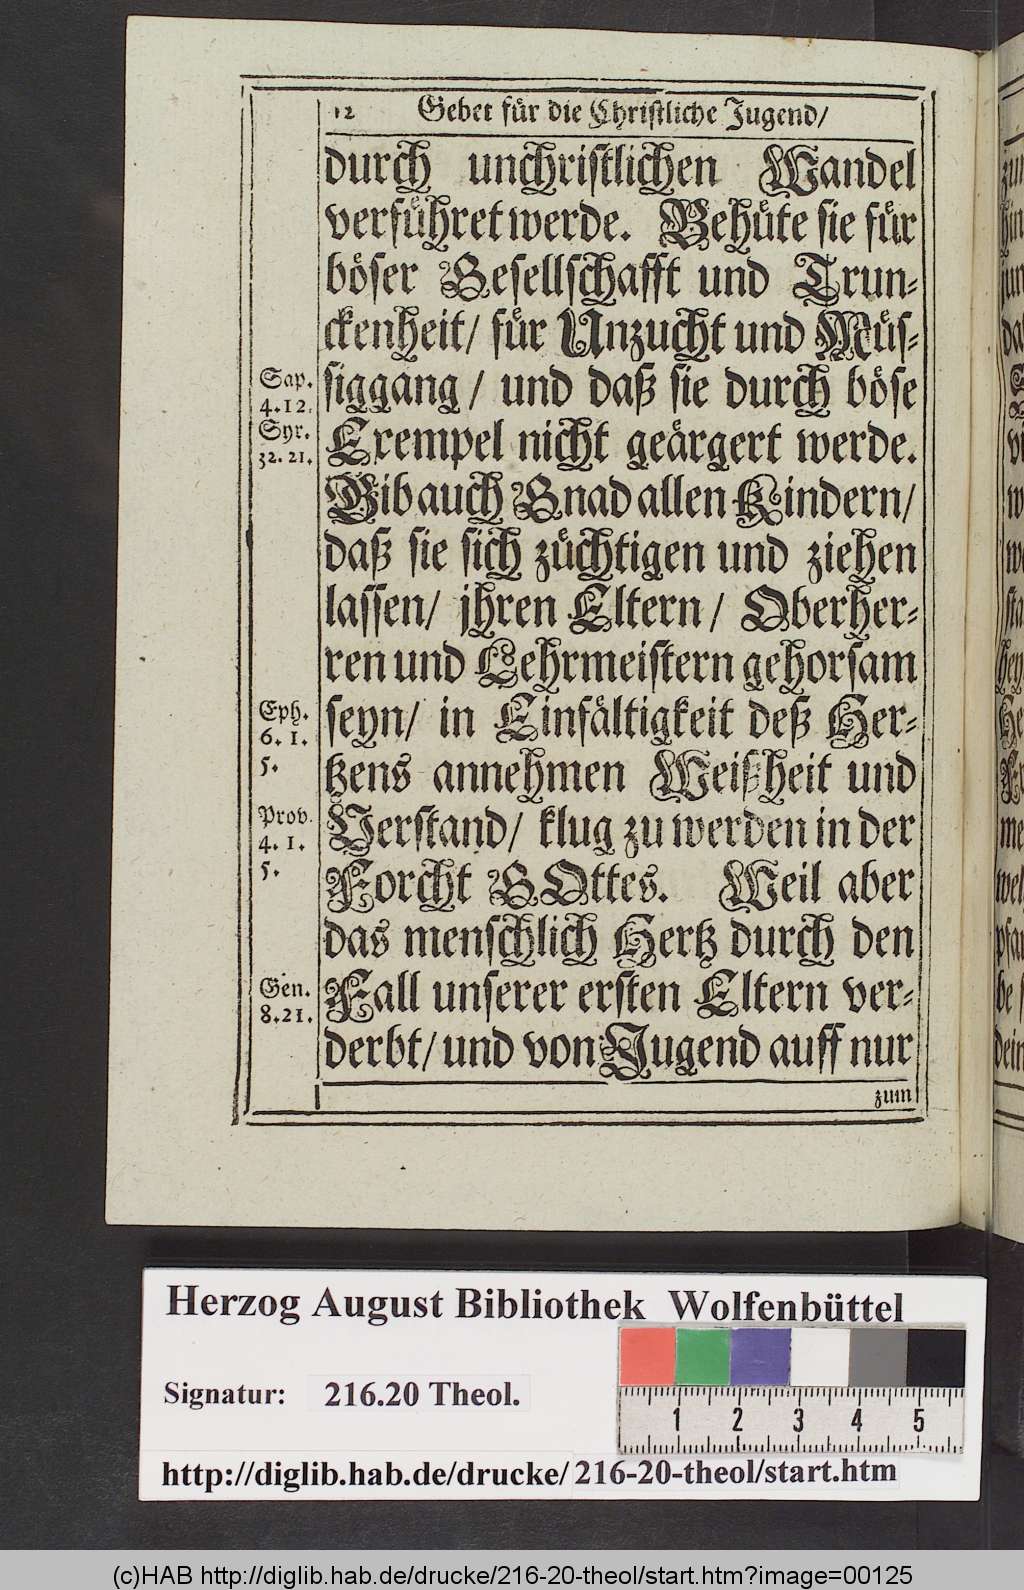 12 Gebet für die Christliche Jugend/
durch unchristlichen Wandel
verführet werde. Behüte sie für
böser Gesellschafft und Trun-
ckenheit/ für Unzucht und Müs-
siggang/ und daß sie durch böse
Exempel nicht geärgert werde.
Gib auch Gnad allen Kindern/
daß sie sich züchtigen und ziehen
lassen/ jhren Eltern/ Oberher-
ren und Lehrmeistern gehorsam
seyn/ in Einfältigkeit deß Her-
tzens annehmen Weißheit und
Verstand/ klug zu werden in der
Forcht GOttes. Weil aber
das menschlich Hertz durch den
Fall unserer ersten Eltern ver-
derbt/ und von Jugend auff nur
zum
Sap.
4.12.
Syr.
32.21.
Eph.
6.1.
5.
Prov.
4.1.
5.
Gen.
8.21.
Herzog August Bibliothek Wolfenbüttel
Signatur: 216.20 Theol.
1 2 3 4 5
http://diglib.hab.de/drucke/216-20-theol/start.htm
(c)HAB http://diglib.hab.de/drucke/216-20-theol/start.htm?image=00125